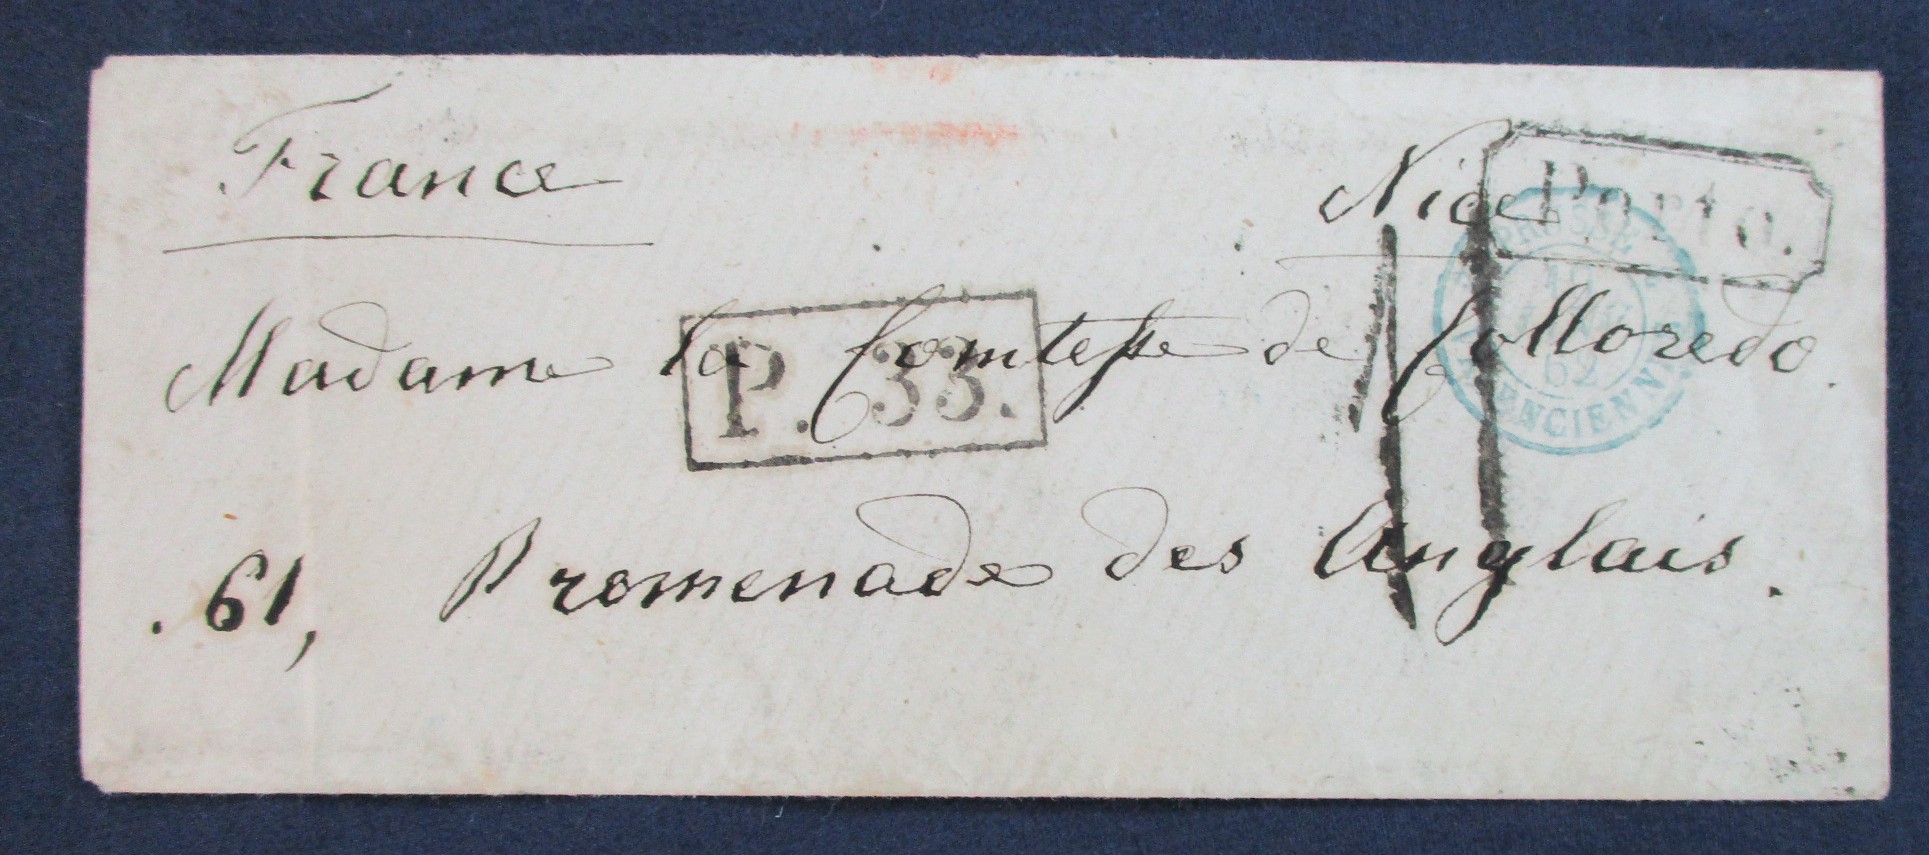 France
Nice
Porto.
PRUSSE
62
Madame la Comtesse de Colloredo.
P. 33.
61, Promenade des Anglais.